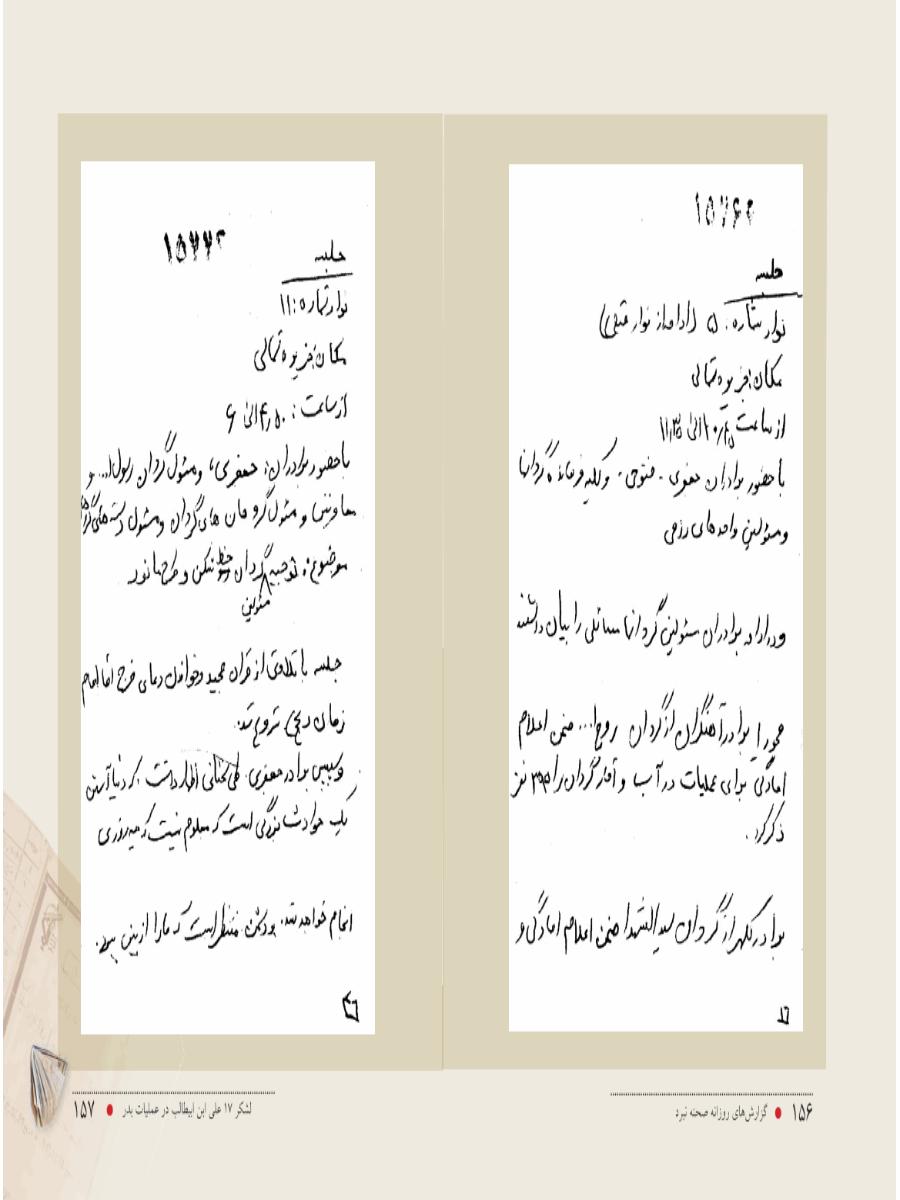 جلسه
نوار شماره: ۵ (ادامه از نوار قبلی)
مکان: جزیره شمالی
از ساعت الی ۱۱,۳۵
با حضور برادران جعفری - فتوحی - و کلیه فرمانده گردانها
و مسئولین واحدهای رزمی
در ادامه برادران مسئولین گردانها مسائلی را بیان داشتند
برادر آهنگران از گردان روح ا... ضمن اعلام
امادگی برای عملیات در آب و آمار گردان را ۳۵۵ نفر
ذکر کرد.
برادر از گردان سیدالشهدا ضمن اعلام امادگی و
۱۵۶ ● گزارش‌های روزانه صحنه نبرد
جلسه
نوار شماره: ۱۱
مکان: جزیره شمالی
از ساعت: الی ۶
با حضور برادران: جعفری، و مسئول گردان رسول ا... و
معاونین و مسئول گروهان های گردان و مسئول دسته های
موضوع: توجیه مسئولین گردان خط شکن و طرح مانور
جلسه با تلاوتی از قران مجید و خواندن دعای فرج اقا امام
زمان (عج) شروع شد.
و سپس برادر جعفری طی سخنانی اظهار داشت که دنیا آبستن
یک حوادث بزرگی است که معلوم نیست که چه روزی
انجام خواهد شد. و دشمن منتظر است که ما را از بین ببرد.
لشکر ۱۷ علی ابن ابیطالب در عملیات بدر ● ۱۵۷